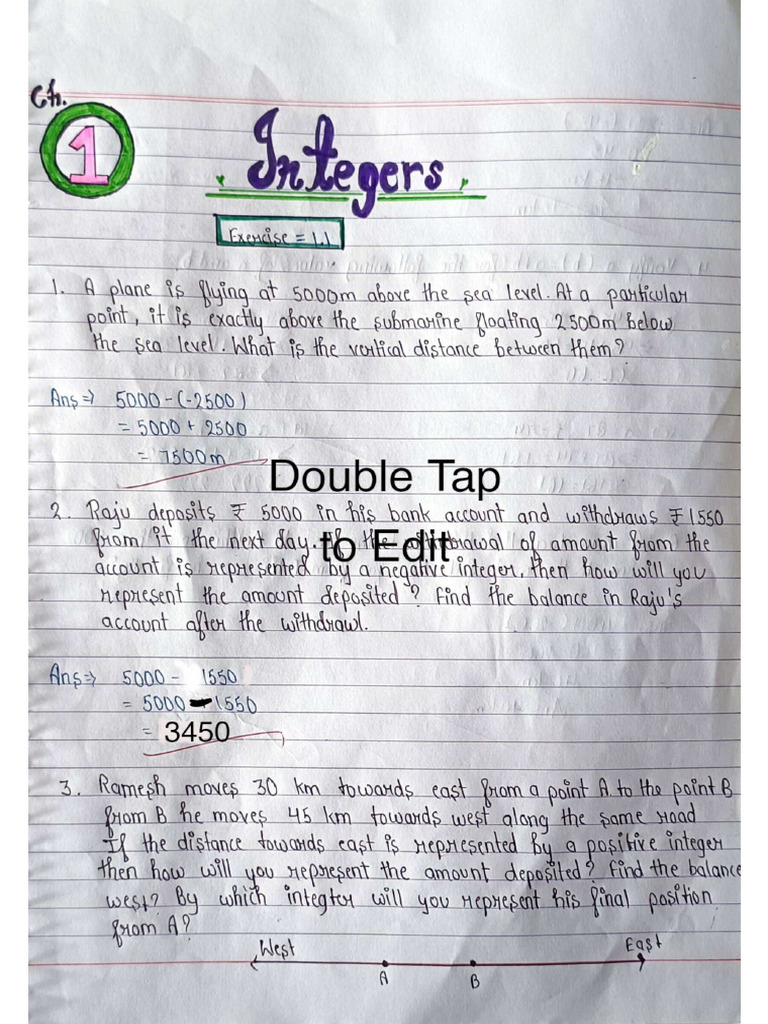 Ch.
1
Integers
Exercise = 1.1
1. A plane is flying at 5000m above the sea level. At a particular
point, it is exactly above the submarine floating 2500m below
the sea level. What is the vortical distance between them?
Ans ⇒ 5000 - (-2500)
= 5000 + 2500
= 7500m
Double Tap
to Edit
2. Raju deposits ₹ 5000 in his bank account and withdraws ₹1550
from it the next day. If the withdrawal of amount from the
account is represented by a negative integer, then how will you
represent the amount deposited? Find the balance in Raju's
account after the withdrawl.
Ans ⇒ 5000 - 1550
= 5000 - 1550
= 3450
3. Ramesh moves 30 km towards east from a point A to the point B
from B he moves 45 km towards west along the same road
If the distance towards east is represented by a positive integer
then how will you represent the amount deposited? Find the balance
west? By which integter will you represent his final position
from A?
West East
A B